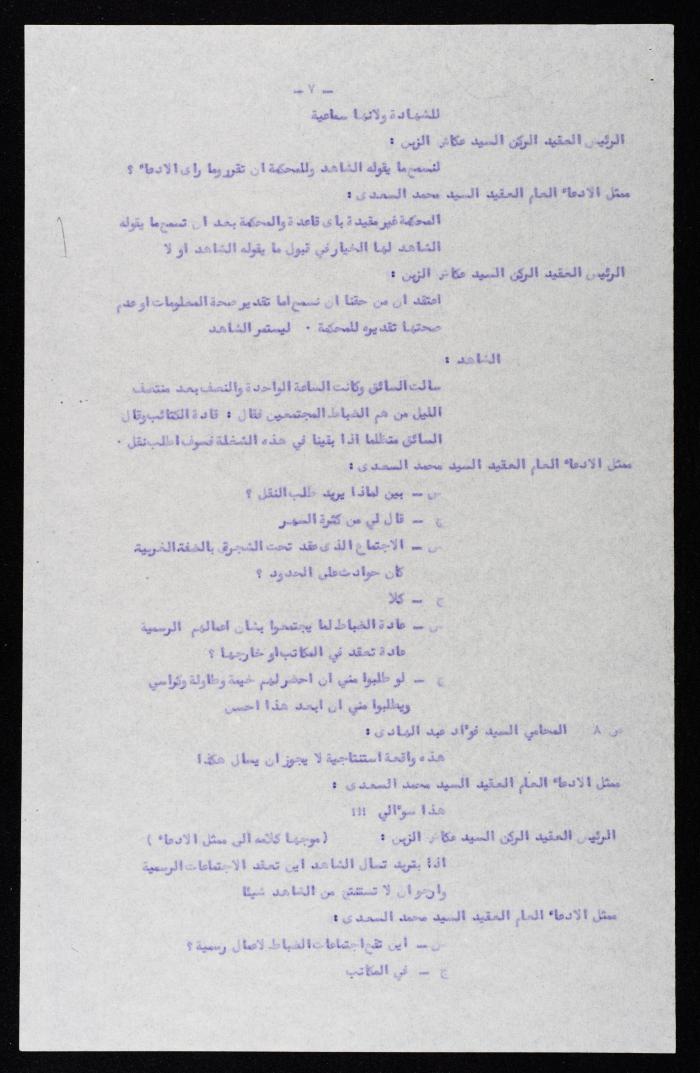 - ٧ -
للشهادة ولانها سماعية
الرئيس العقيد الركن السيد عكاش الزبن :
لنسمع ما يقوله الشاهد وللمحكمة ان تقرر وما راى الادعاء ؟
ممثل الادعاء العام العقيد السيد محمد السعدى :
المحكمة غير مقيدة باى قاعدة والمحكمة بعد ان تسمع ما يقوله
الشاهد لها الخيار في قبول ما يقوله الشاهد او لا
الرئيس العقيد الركن السيد عكاش الزبن :
اعتقد ان من حقنا ان نسمع اما تقدير صحة المعلومات او عدم
صحتها تقديره للمحكمة . ليستمر الشاهد
الشاهد :
سالت السائق وكانت الساعة الواحدة والنصف بعد منتصف
الليل من هم الضباط المجتمعين فقال : قادة الكتائب وقال
السائق متظلما اذا بقينا في هذه الشغلة فسوف اطلب نقل .
ممثل الادعاء العام العقيد السيد محمد السعدى :
س - بين لماذا يريد طلب النقل ؟
ج - قال لي من كثرة السهر
س - الاجتماع الذى عقد تحت الشجر في بالضفة الغربية
كان حوادث على الحدود ؟
ج - كلا
س - عادة الضباط لما يجتمعوا بشان اعمالهم الرسمية
عادة تعقد في المكاتب او خارجها ؟
ج - لو طلبوا مني ان احضر لهم خيمة وطاولة وكراسي
ويطلبوا مني ان ابعد هذا احسن
ص ٨ المحامي السيد فوءاد عبد الهادى :
هذه واقعة استنتاجية لا يجوز ان يسال هكذا
ممثل الادعاء العام العقيد السيد محمد السعدى :
هذا سوءالي !!!
الرئيس العقيد الركن السيد عكاش الزبن : (موجها كلامه الى ممثل الادعاء )
اذا بتريد تسال الشاهد اين تعقد الاجتماعات الرسمية
وارجو ان لا تستنتج من الشاهد شيئا
ممثل الادعاء العام العقيد السيد محمد السعدى :
س - اين تقع اجتماعات الضباط لاعمال رسمية ؟
ج - في المكاتب